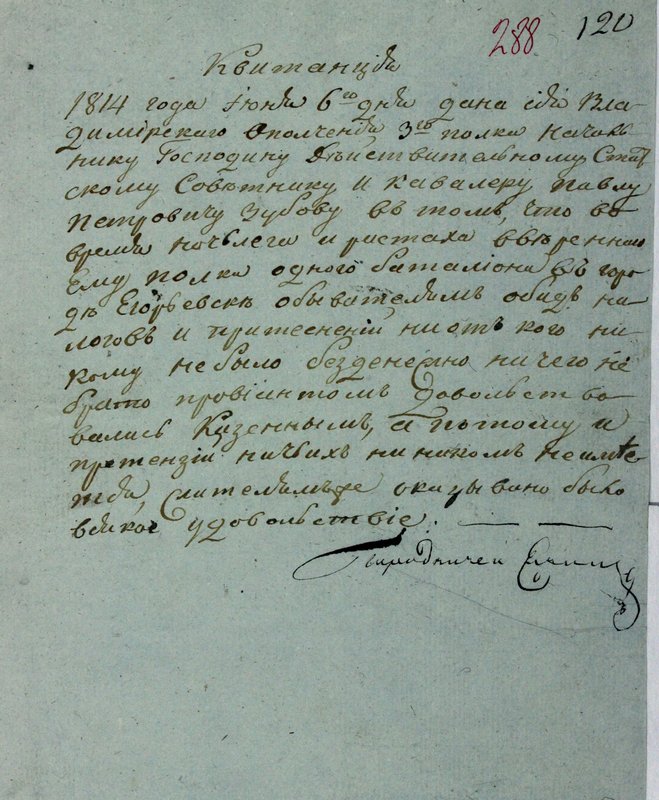 288 120
Квитанція
1814 года Іюня 6го дня дана сія Вла-
димірскаго Ополченія 3го полка Началь
нику Господину Дѣйствительному Стат
скому Совѣтнику и кавалеру павлу
петровичу Зубову в томъ, что во
время ночьлега и растаха ввѣреннаго
Ему полка одного баталіона въ горо
дѣ Егорьевскѣ обывателямъ обидъ на
логовъ и притесненій ниотъ кого ни
кому небыло безденежно ничего не
брато провіантомъ довольство
вались Казеннымъ, а потому и
претензіи ничьихъ нинакомъ неимѣе
тся, жителямъ же оказывано было
всякое удовольствіе.
Городничей